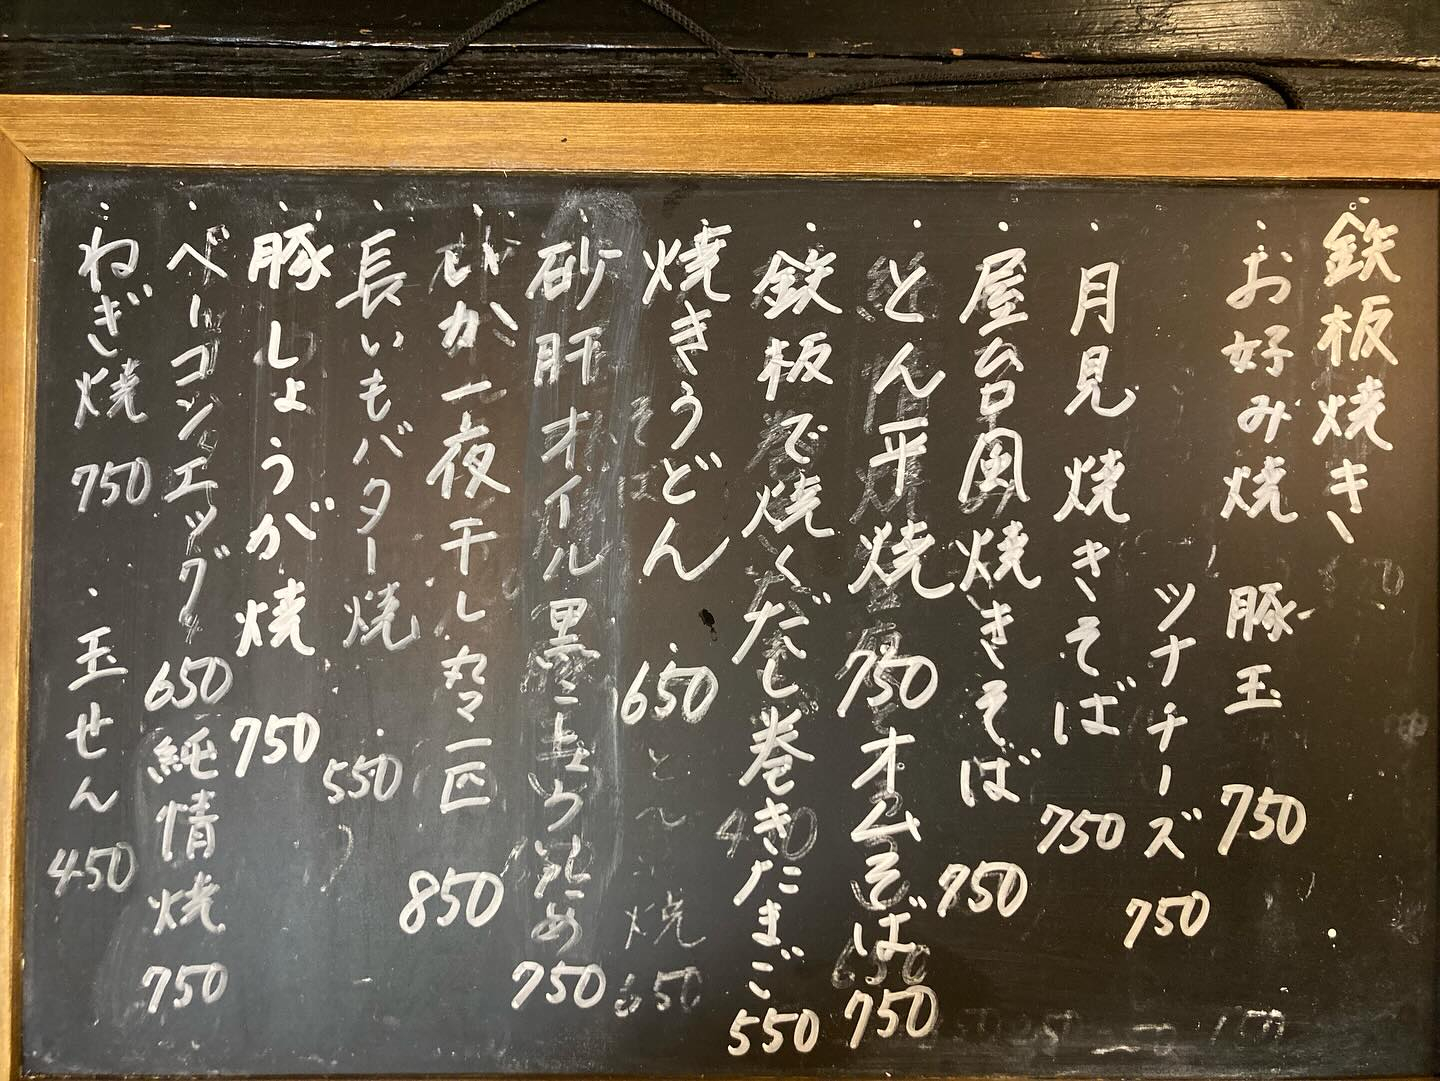 鉄板焼き
・お好み焼 豚玉 750
ツナチーズ 750
・月見焼きそば 750
・屋台風焼きそば 750
・とん平焼 750 オムそば 750
・鉄板で焼くだし巻きたまご 550
・焼きうどん 650
・砂肝オイル黒こしょういため 750
・いか一夜干し丸々一匹 850
・長いもバター焼 550
・豚しょうが焼 750
・ベーコンエッグ 650 純情焼 750
・ねぎ焼 750 ・玉せん 450